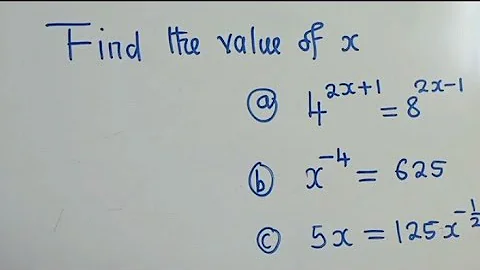 Find the value of x
(a) 4^{2x+1} = 8^{2x-1}
(b) x^{-4} = 625
(c) 5x = 125x^{-1/2}